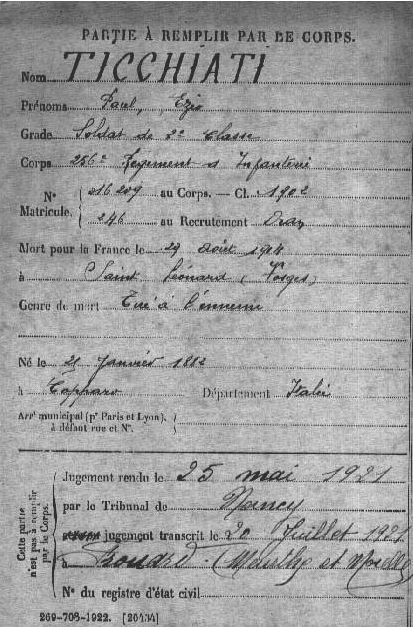 PARTIE À REMPLIR PAR LE CORPS.
Nom TICCHIATI
Prénoms Paul, Ezio
Grade Soldat de 2e Classe
Corps 256e Regiment d'Infanterie
N° Matricule. 016209 au Corps. — Cl. 1902
246 au Recrutement Oran
Mort pour la France le 29 août 1914
à Saint Léonard (Vosges)
Genre de mort Tué à l'ennemi
Né le 21 Janvier 1882
à Copparo Département Italie
Arrt municipal (pr Paris et Lyon),
à défaut rue et N°.
Cette partie n'est pas à remplir par le Corps.
Jugement rendu le 25 mai 1921
par le Tribunal de Nancy
jugement transcrit le 20 Juillet 1921
à (Meurthe et Moselle)
N° du registre d'état civil
269-708-1922. [26434]